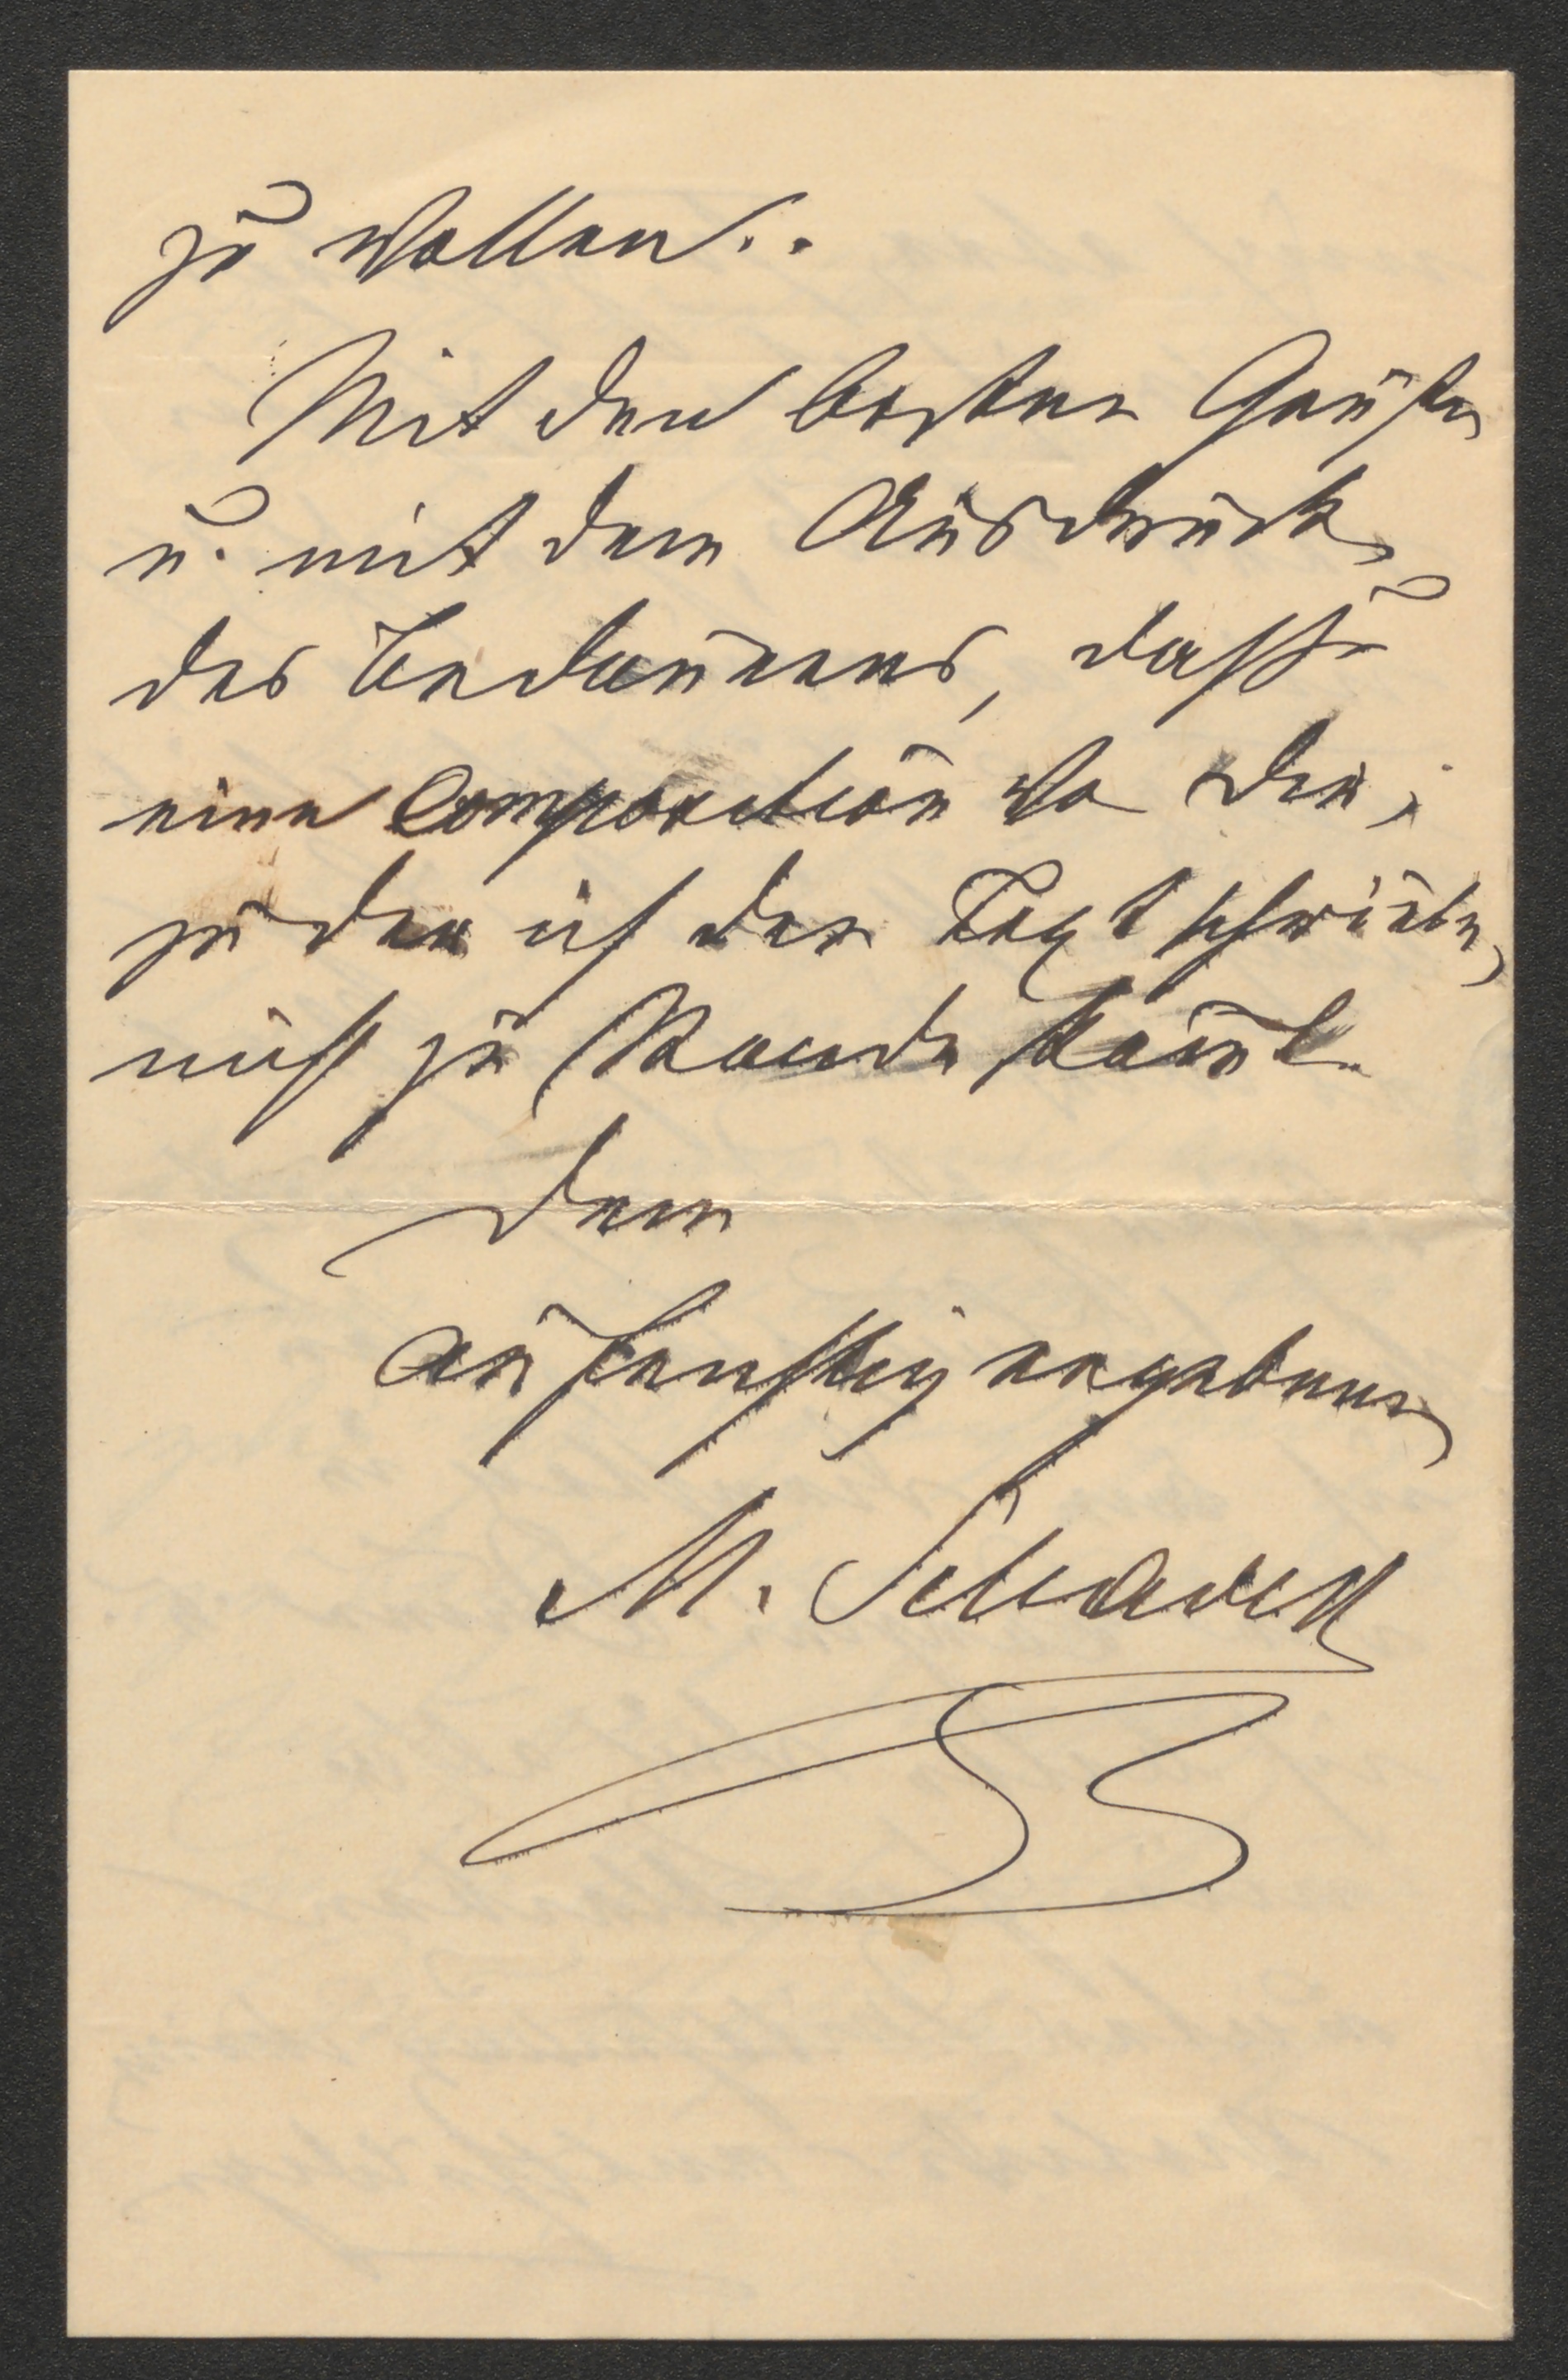 zu wollen..
Mit den besten Grüßen
u. mit dem Ausdruck
des Bedauerns, dass
eine Composition von Dir,
zu der ich den Text schriebe,
nicht zu Stande kömt.
Dein
aufrichtig ergebener
M.